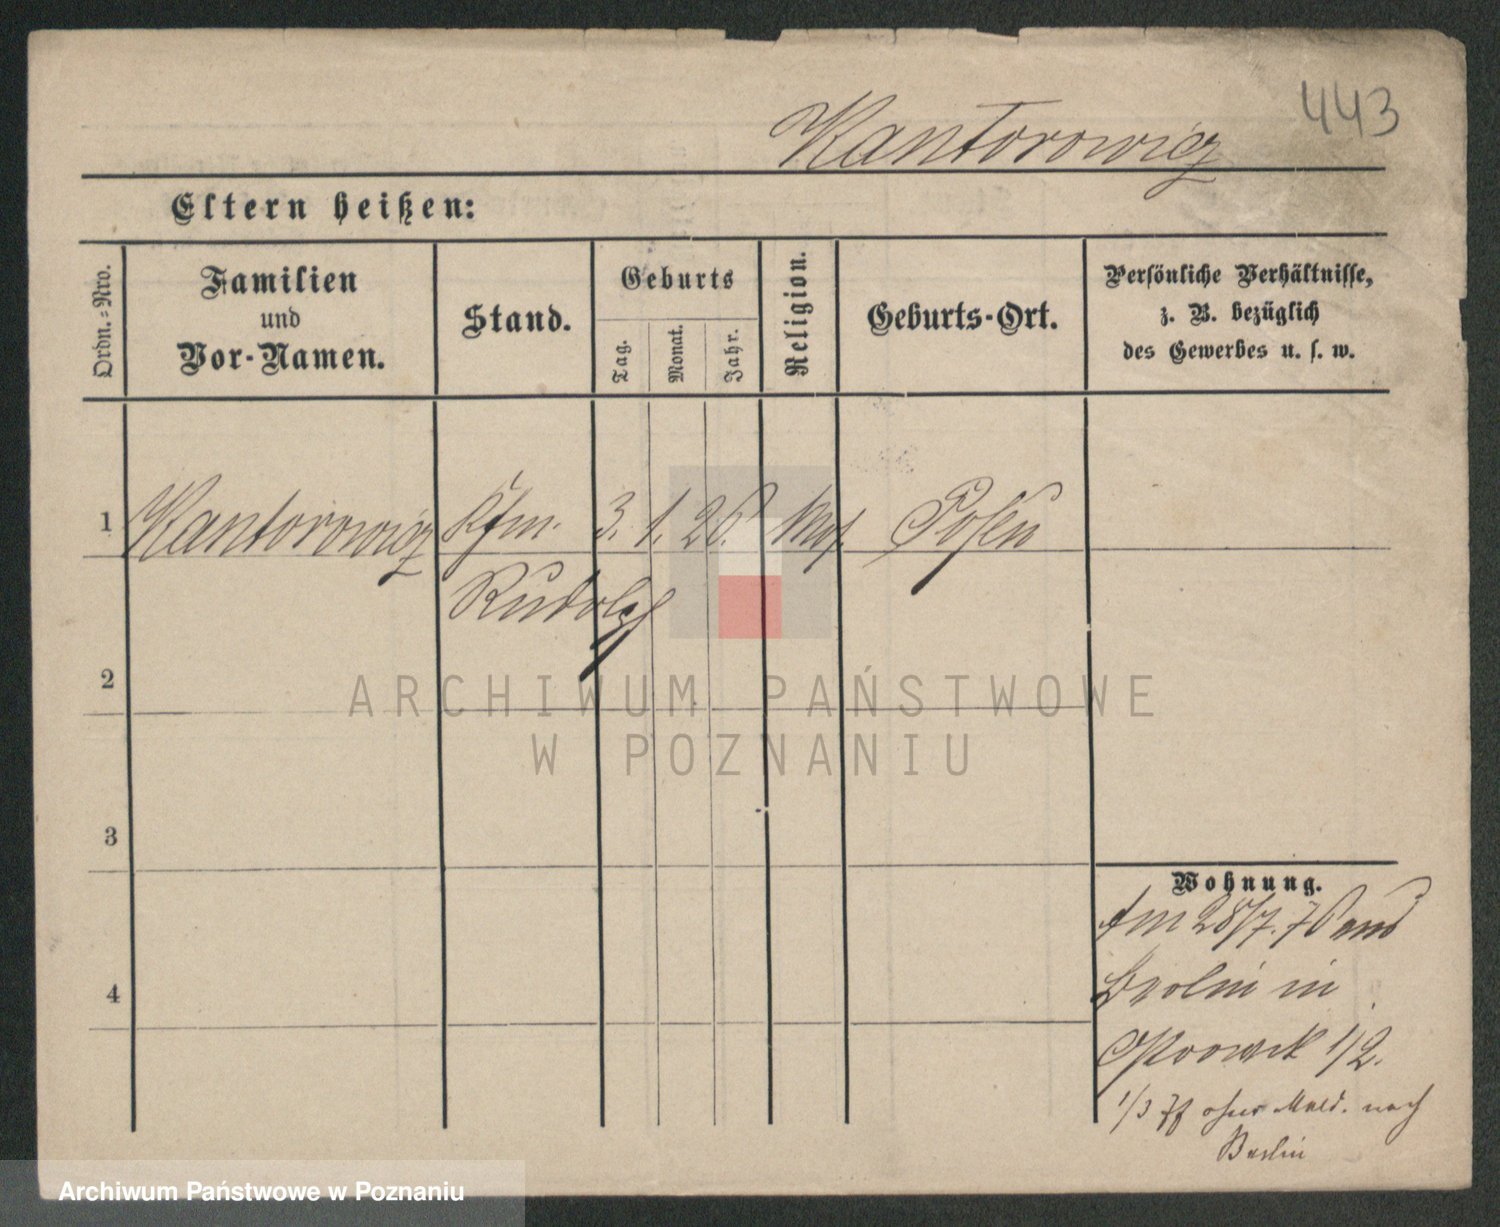 443
Kantorowicz
Eltern heißen:
Ordn.-Nro.
Familien
und
Vor-Namen.
Stand.
Geburts
Tag.
Monat.
Jahr.
Religion.
Geburts-Ort.
Persönliche Verhältnisse,
z. B. bezüglich
des Gewerbes u. s. w.
1 Kantorowicz Kfm. 3. 1. 26. Mos. Posen
Rudolf
2
ARCHIWUM PAŃSTWOWE
W POZNANIU
3
Wohnung.
28/7. 70
4
in
1/2.
1/3 ohne Meld. nach
Berlin
Archiwum Państwowe w Poznaniu